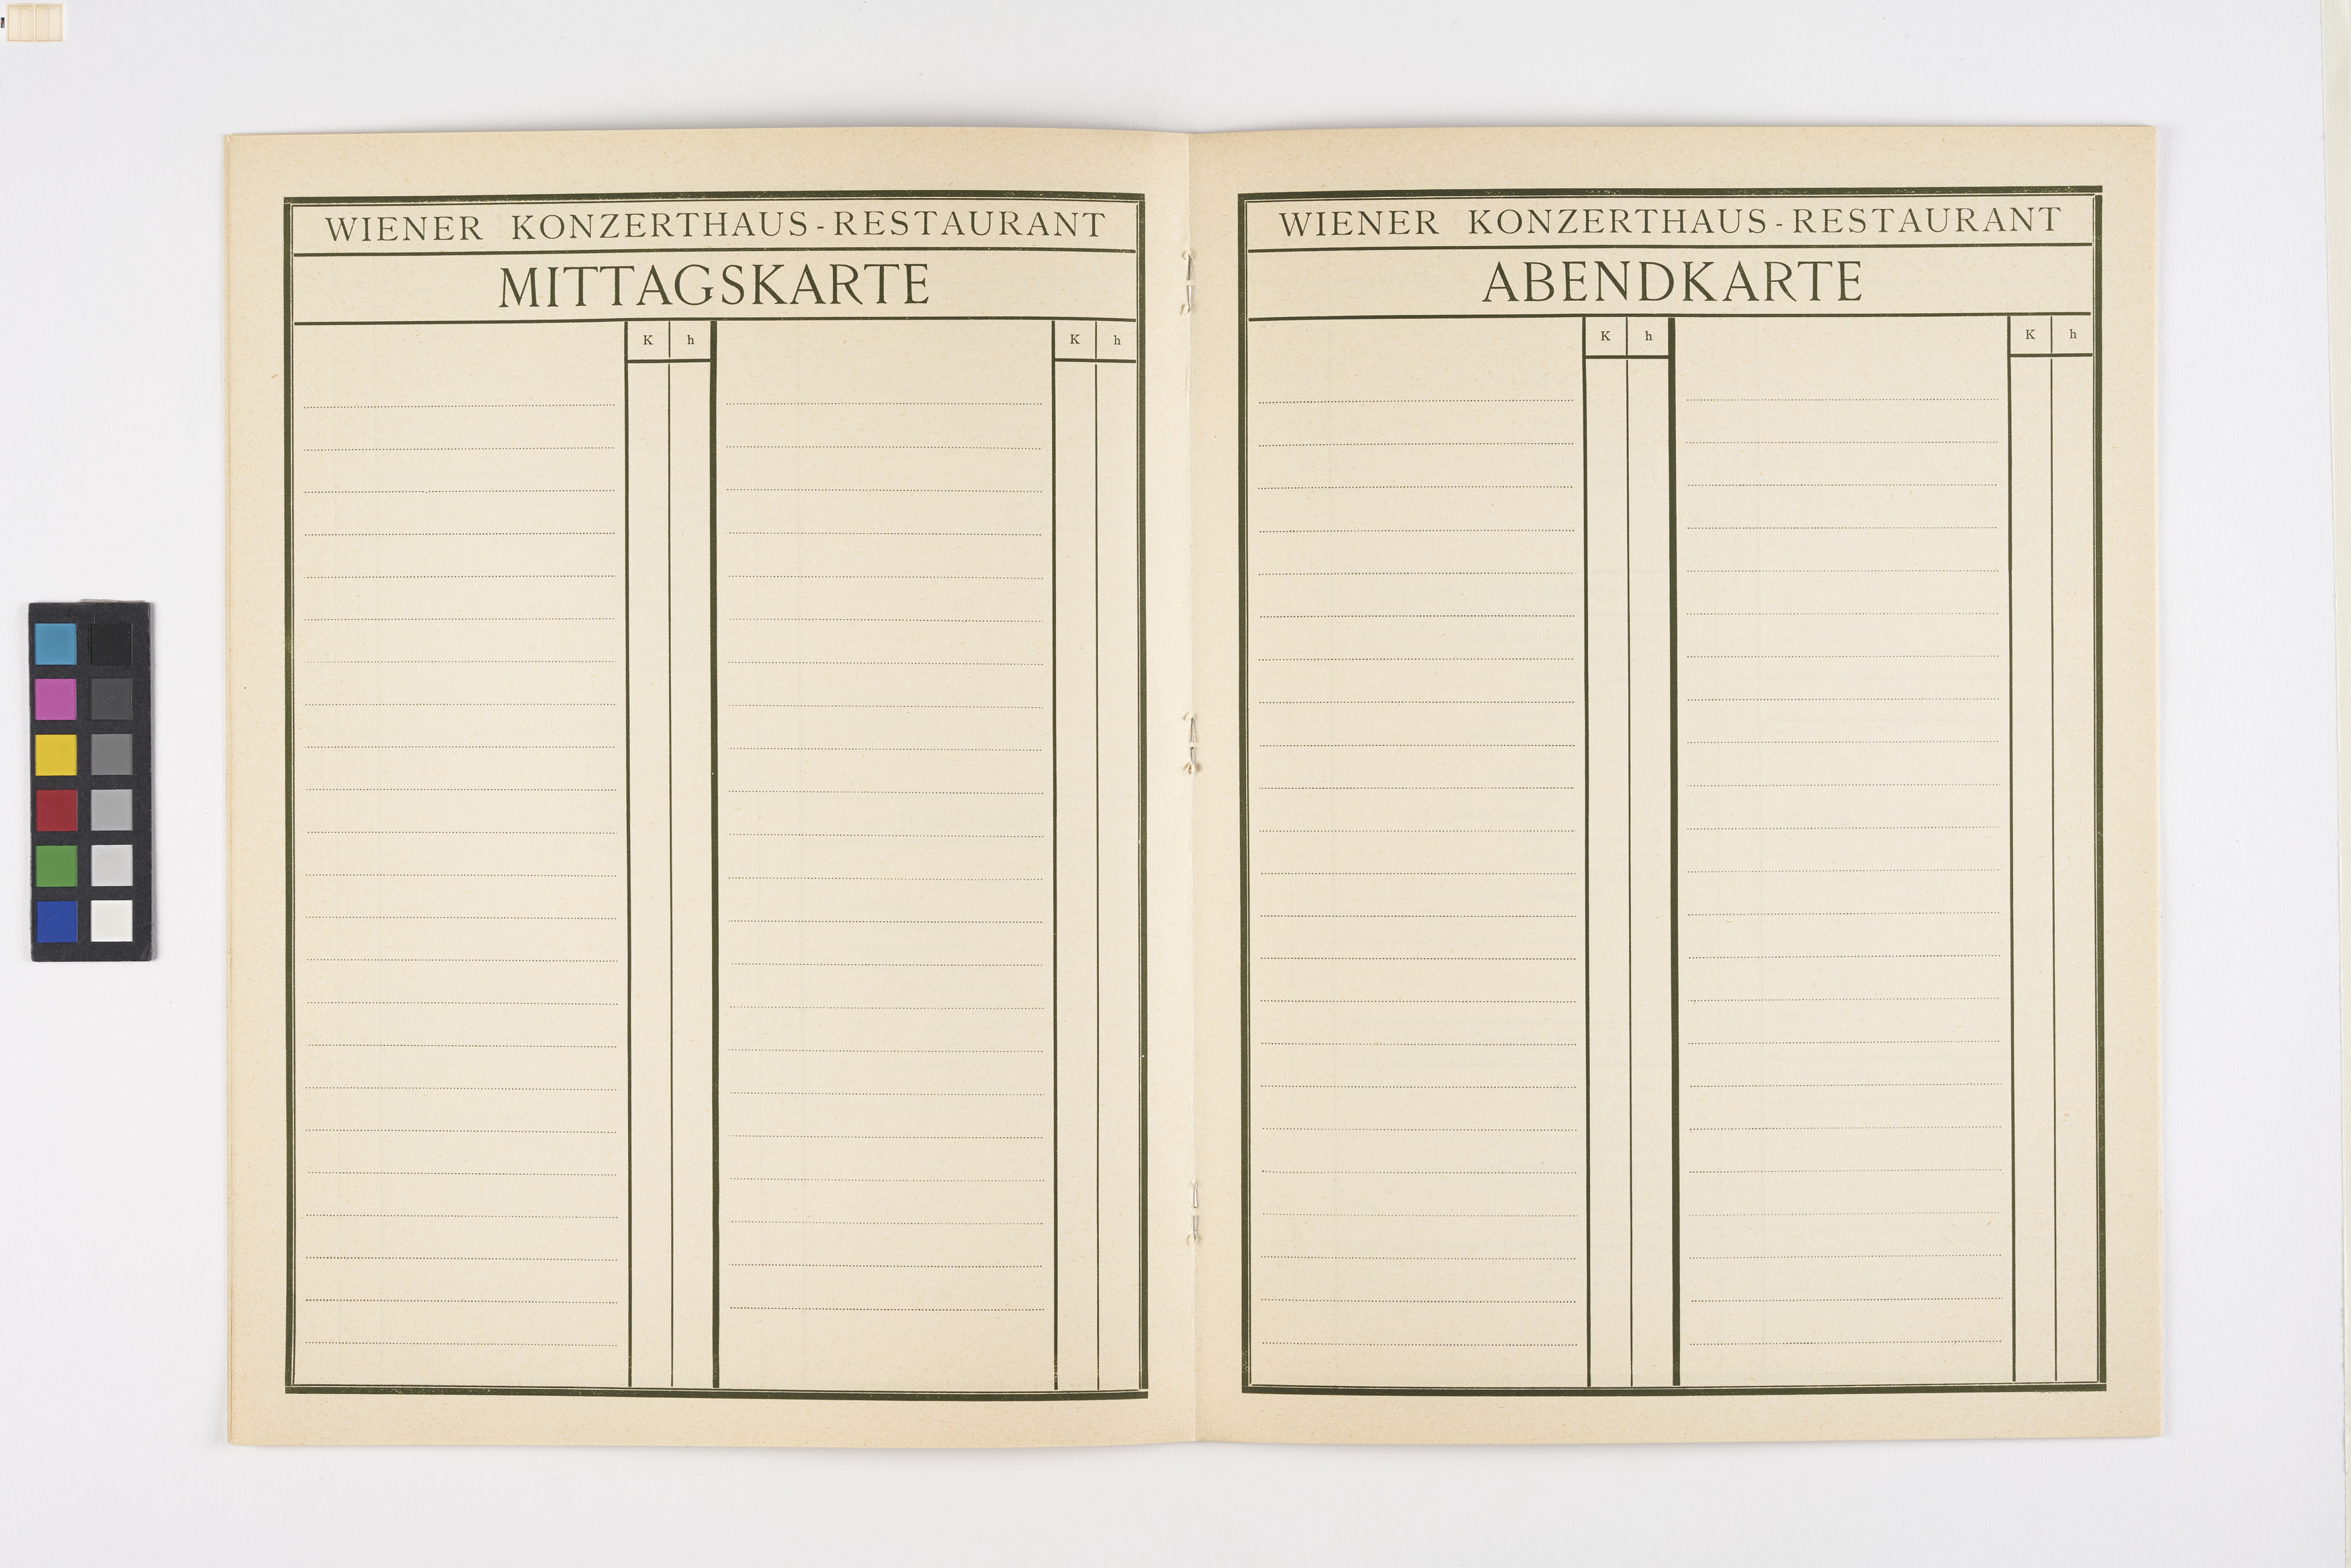 WIENER KONZERTHAUS-RESTAURANT
MITTAGSKARTE
K h K h
WIENER KONZERTHAUS-RESTAURANT
ABENDKARTE
K h K h